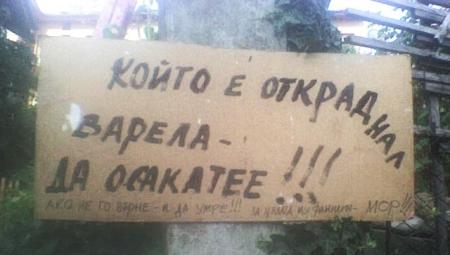 КОЙТО Е ОТКРАДНАЛ
ВАРЕЛА-
ДА ОСАКАТЕЕ!!!
АКО НЕ ГО ВЪРНЕ - И ДА УМРЕ!!! И МОР!!!